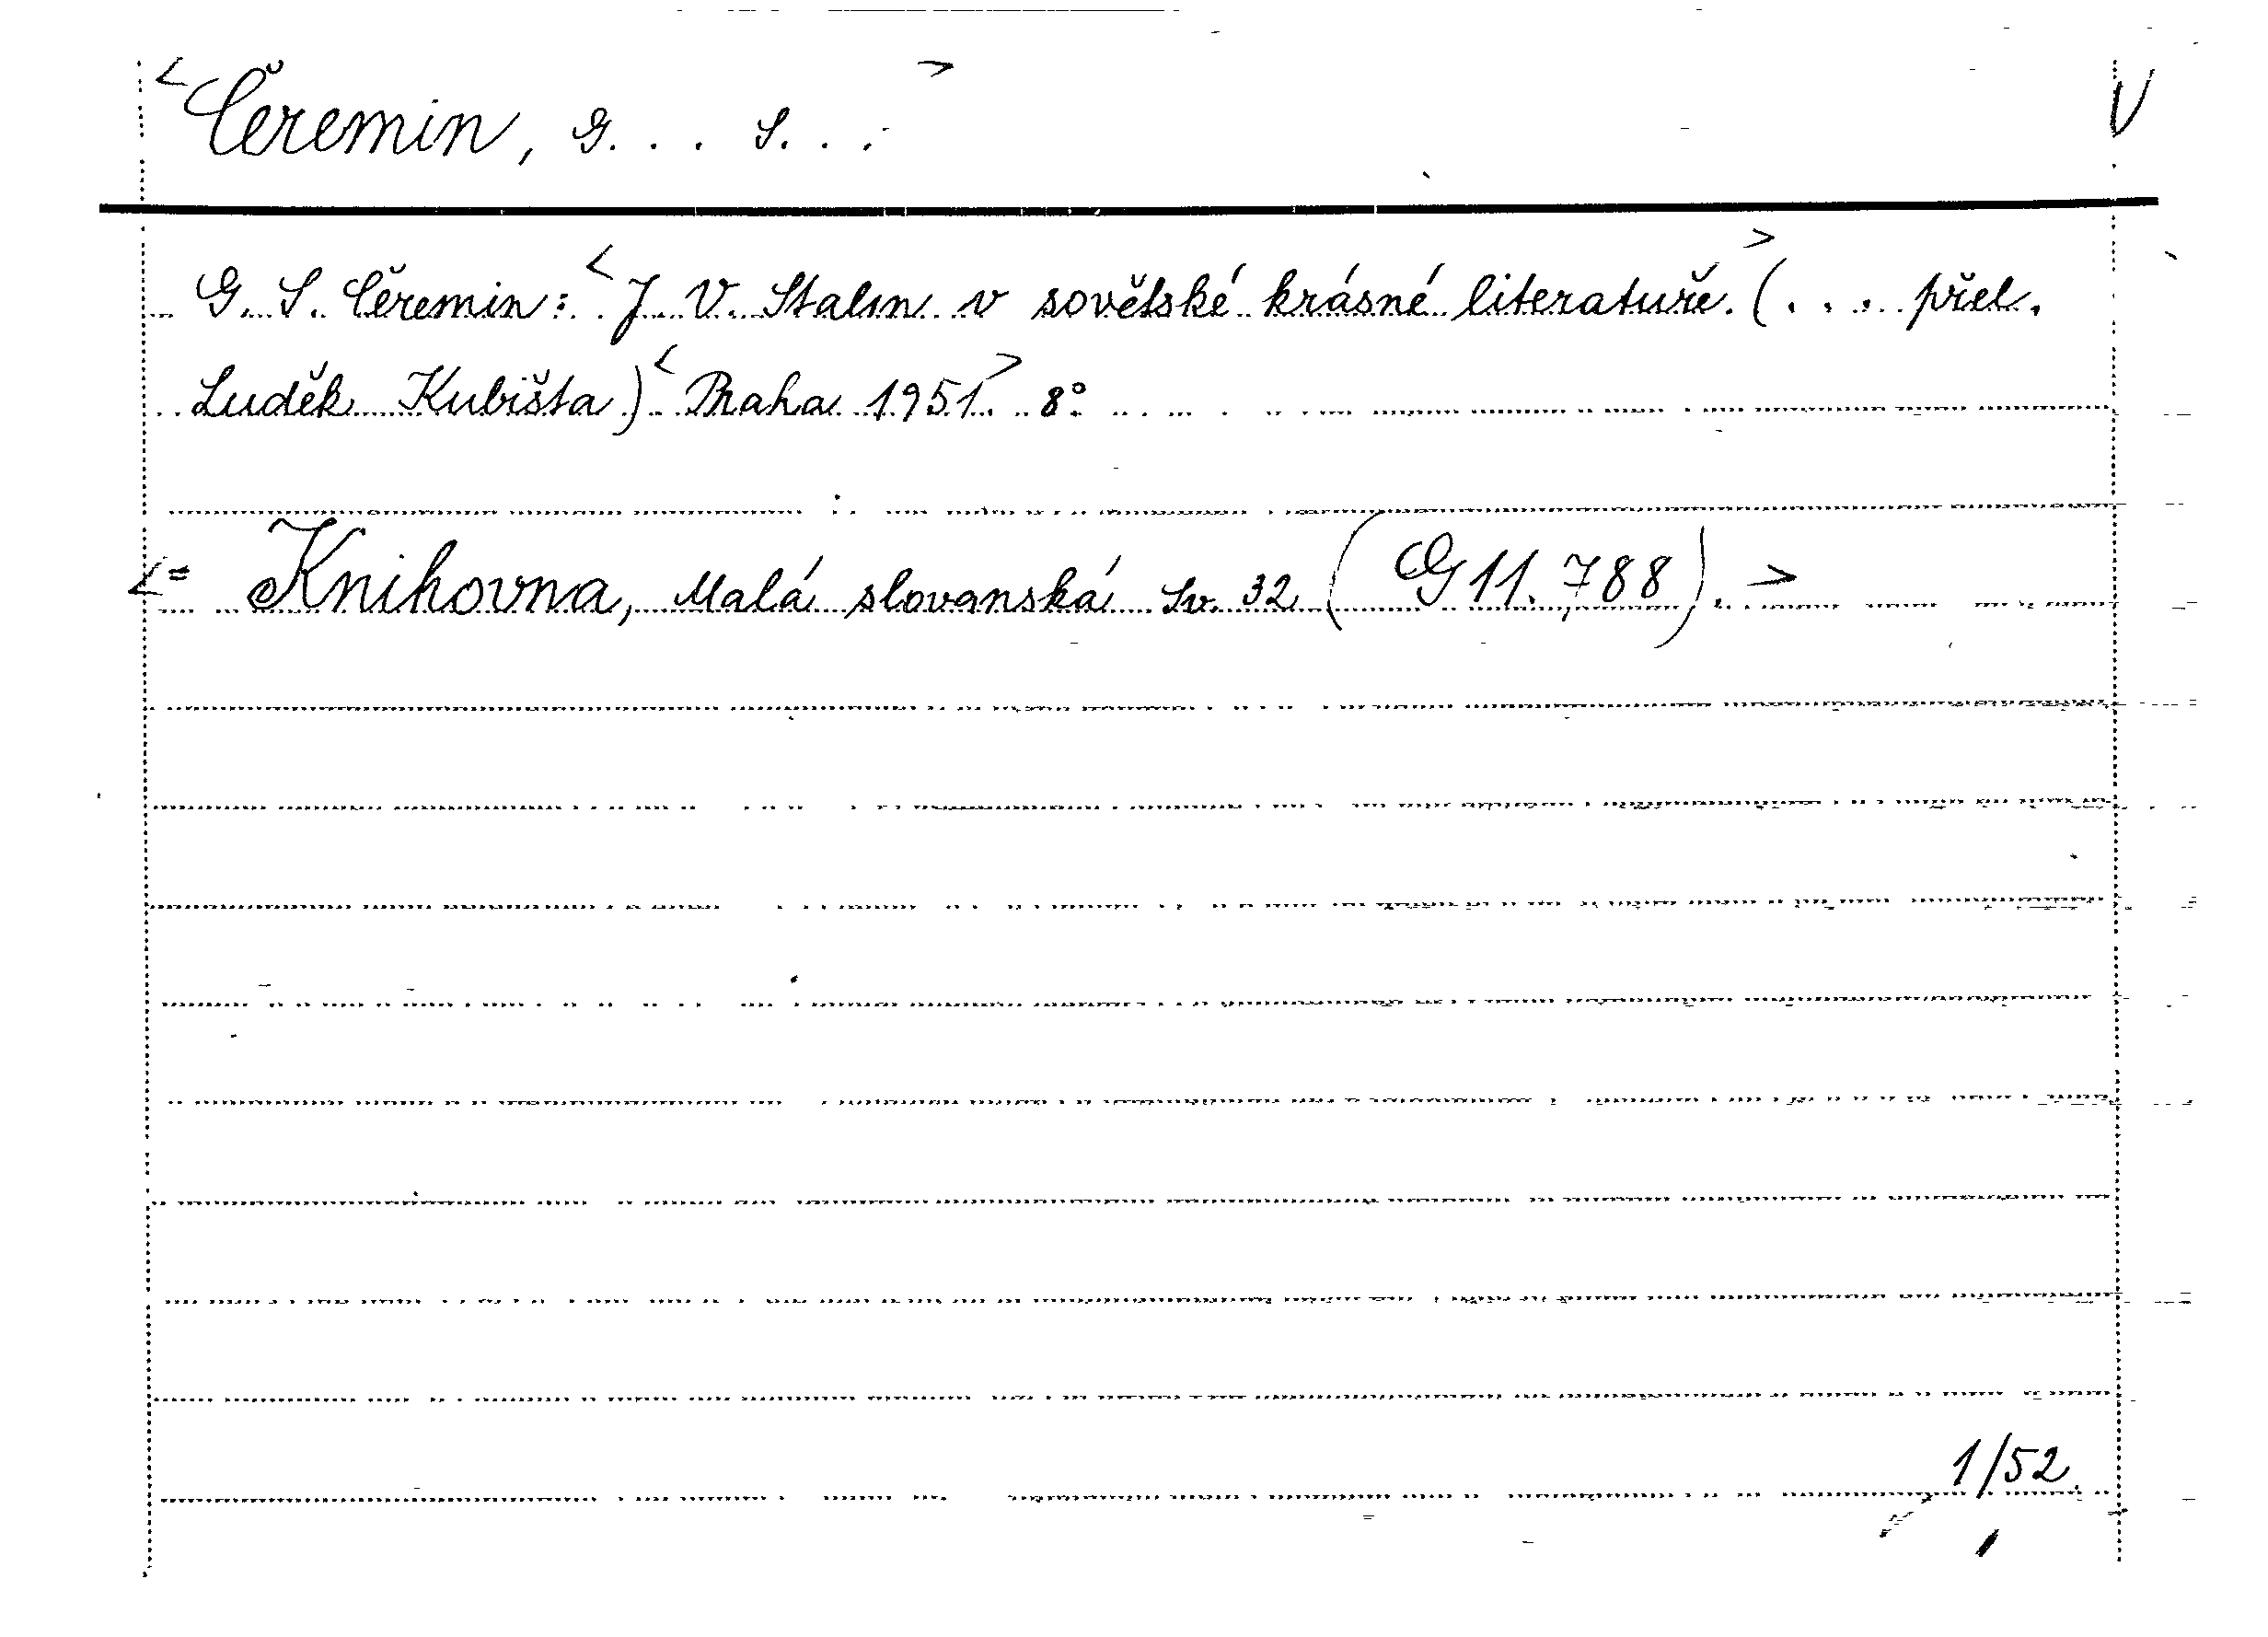 <Čeremin, G... S...> V
G. S. Čeremin: <J. V. Stalin v sovětské krásné literatuře.> (... přel.
Luděk Kubišta) <Praha 1951> 8°
<= Knihovna, Malá slovanská Sv. 32 (G 11.788). >
1/52